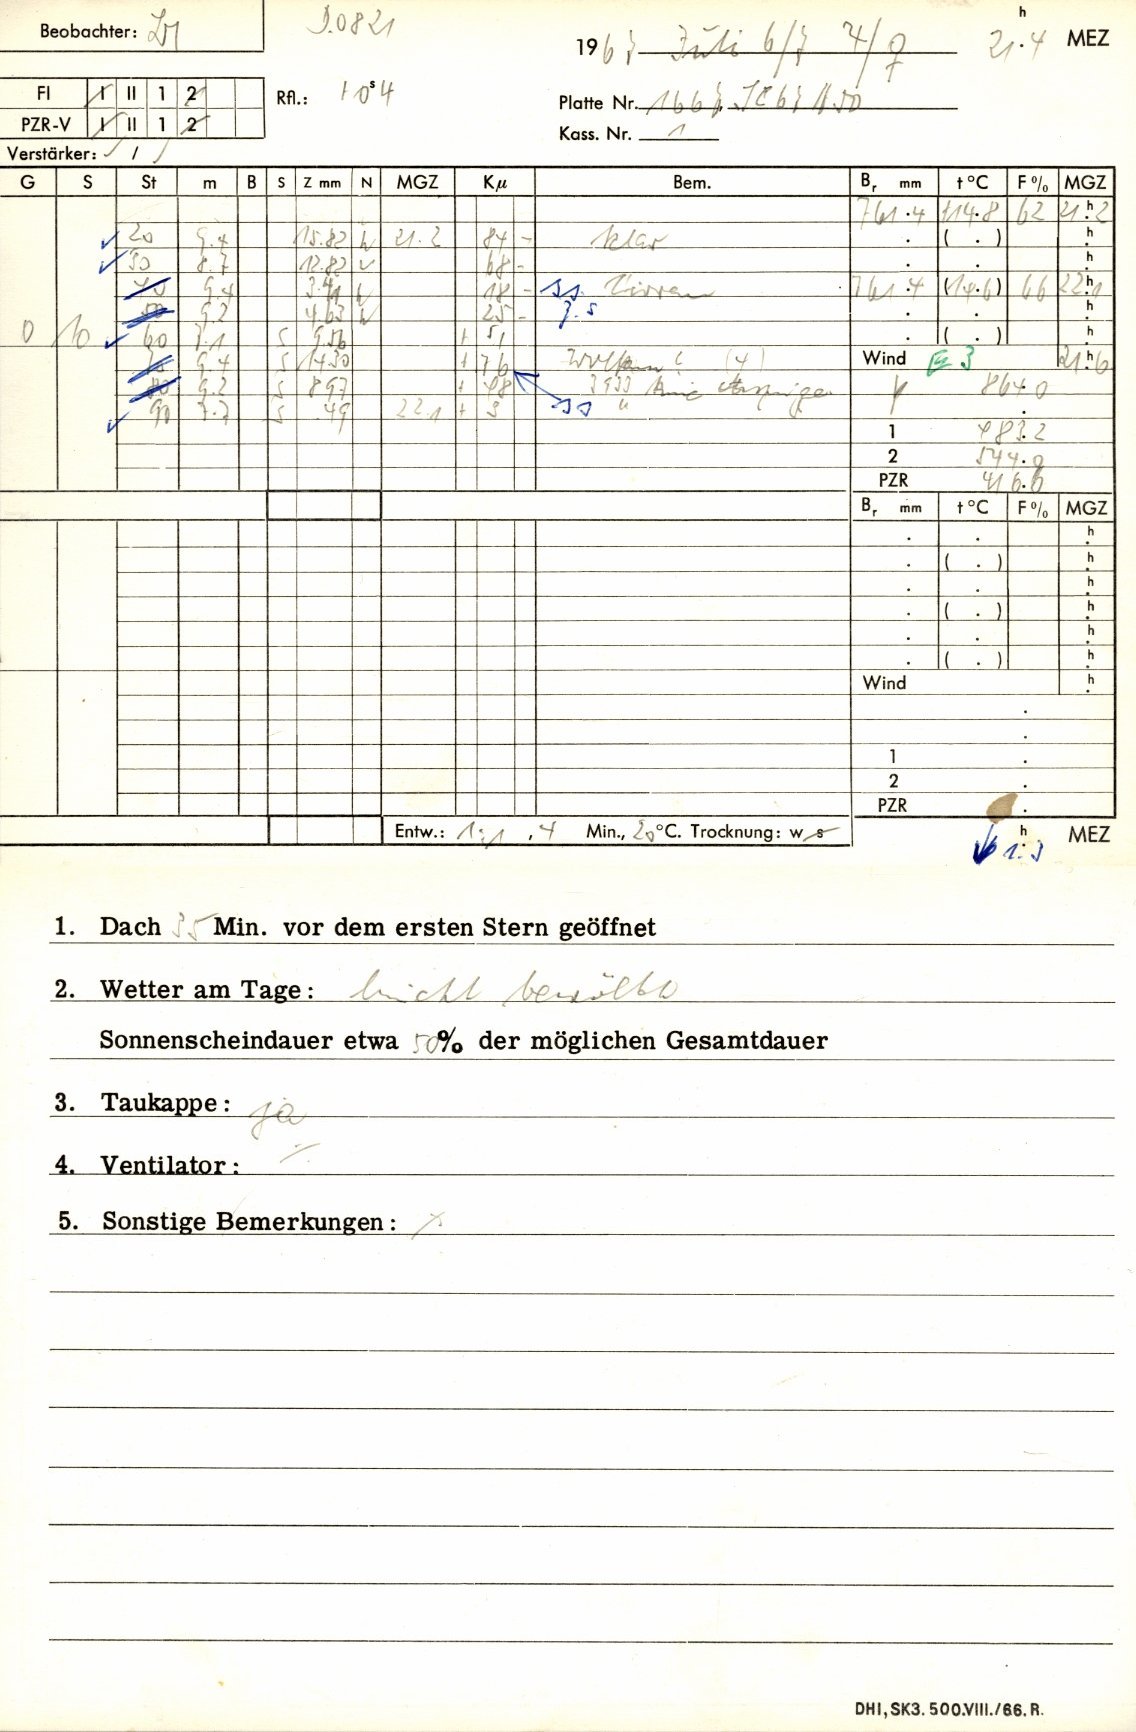 Beobachter:
D.0821
1967 Juli 6/7 4/♀ 21.4 h MEZ
FI I II 1 2
Rfl.: + 0 s 4
Platte Nr. 1667
PZR-V I II 1 2
Kass. Nr. 1
Verstärker: /
G S St m B S Z mm N MGZ Kμ Bem. Br mm t °C F% MGZ
761.4 14.8 62 21.2 h
20 9.4 15.82 N 21.2 84 - klar . ( . ) h
30 8.7 12.82 N 68 - . . h
9.4 N 18 - ss. Cirren 761.4 (14.6) 66 22.1 h
9.2 4.63 N 25 - . . h
0 10 60 7.1 S 9.56 + 51 . ( . ) h
9.4 S 14.30 + 76 Wolken (4) Wind E 3 21.6 h
9.2 S 8.97 + 48 864.0
90 7.7 S 49 22.1 + 3 ss "
1 483.2
2 544.0
PZR 416.6
Br mm t °C F% MGZ
. . h
. ( . ) h
. . h
. ( . ) h
. . h
. ( . ) h
Wind h
1 .
2 .
PZR .
Entw.: 1:1 , 4 Min., 20 °C. Trocknung: w s
1.3 h MEZ
1. Dach 35 Min. vor dem ersten Stern geöffnet
2. Wetter am Tage: leicht bewölkt
Sonnenscheindauer etwa 50% der möglichen Gesamtdauer
3. Taukappe: ja
4. Ventilator:
5. Sonstige Bemerkungen:
DHI, SK3. 500.VIII./66. R.